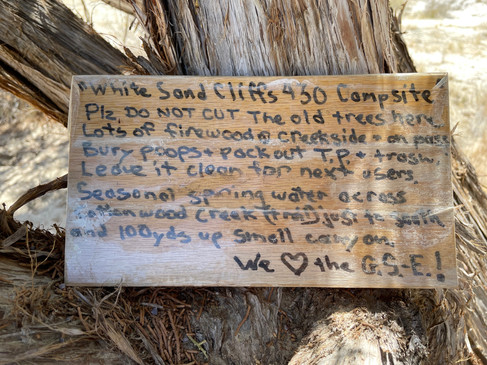 White Sand Cliffs 430 Campsite
Plz, DO NOT CUT The old trees here.
Lots of firewood @ creekside + on pass
Bury poops + pack out T.P. + trash.
Leave it clean for next users.
Seasonal spring water across
Cottonwood Creek just to
and 100yds up small canyon.
We ♡ the G.S.E.!